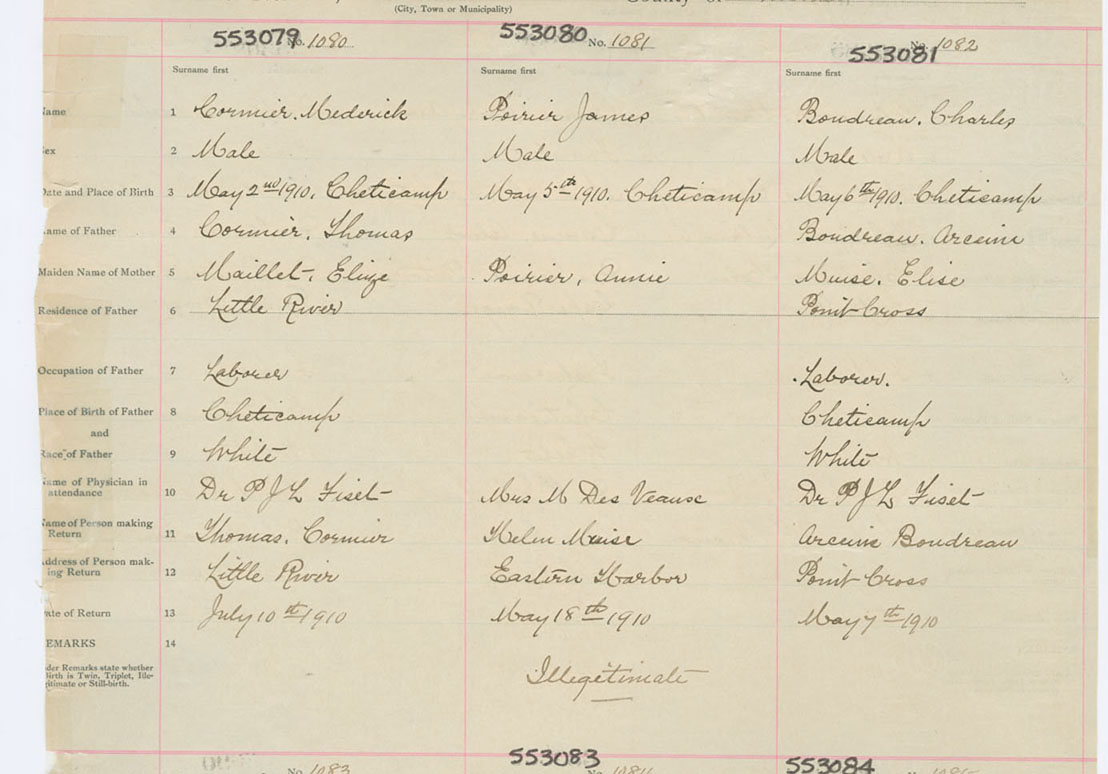 (City, Town or Municipality)
553079 No. 1080 553080 No. 1081 553081 No. 1082
Surname first Surname first Surname first
Name 1 Cormier, Mederick Poirier James Boudreau, Charles
Sex 2 Male Male Male
Date and Place of Birth 3 May 2nd 1910, Cheticamp May 5th 1910. Cheticamp May 6th 1910. Cheticamp
Name of Father 4 Cormier, Thomas Boudreau. Arceine
Maiden Name of Mother 5 Maillet, Elize Poirier, Annie Muise. Elise
Residence of Father 6 Little River Point Cross
Occupation of Father 7 Laborer Laborer.
Place of Birth of Father 8 Cheticamp Cheticamp
and
Race of Father 9 White White
Name of Physician in
attendance 10 Dr P J L Fiset Mrs M Des Veause Dr P J L Fiset
Name of Person making
Return 11 Thomas. Cormier Helen Muise Arceine Boudreau
Address of Person mak-
ing Return 12 Little River Eastern Harbor Point Cross
Date of Return 13 July 10th 1910 May 18th 1910 May 7th 1910
EMARKS 14
der Remarks state whether
Birth is Twin, Triplet, Ille-
gitimate or Still-birth.
Illegitimate
No. 1083 553083 553084